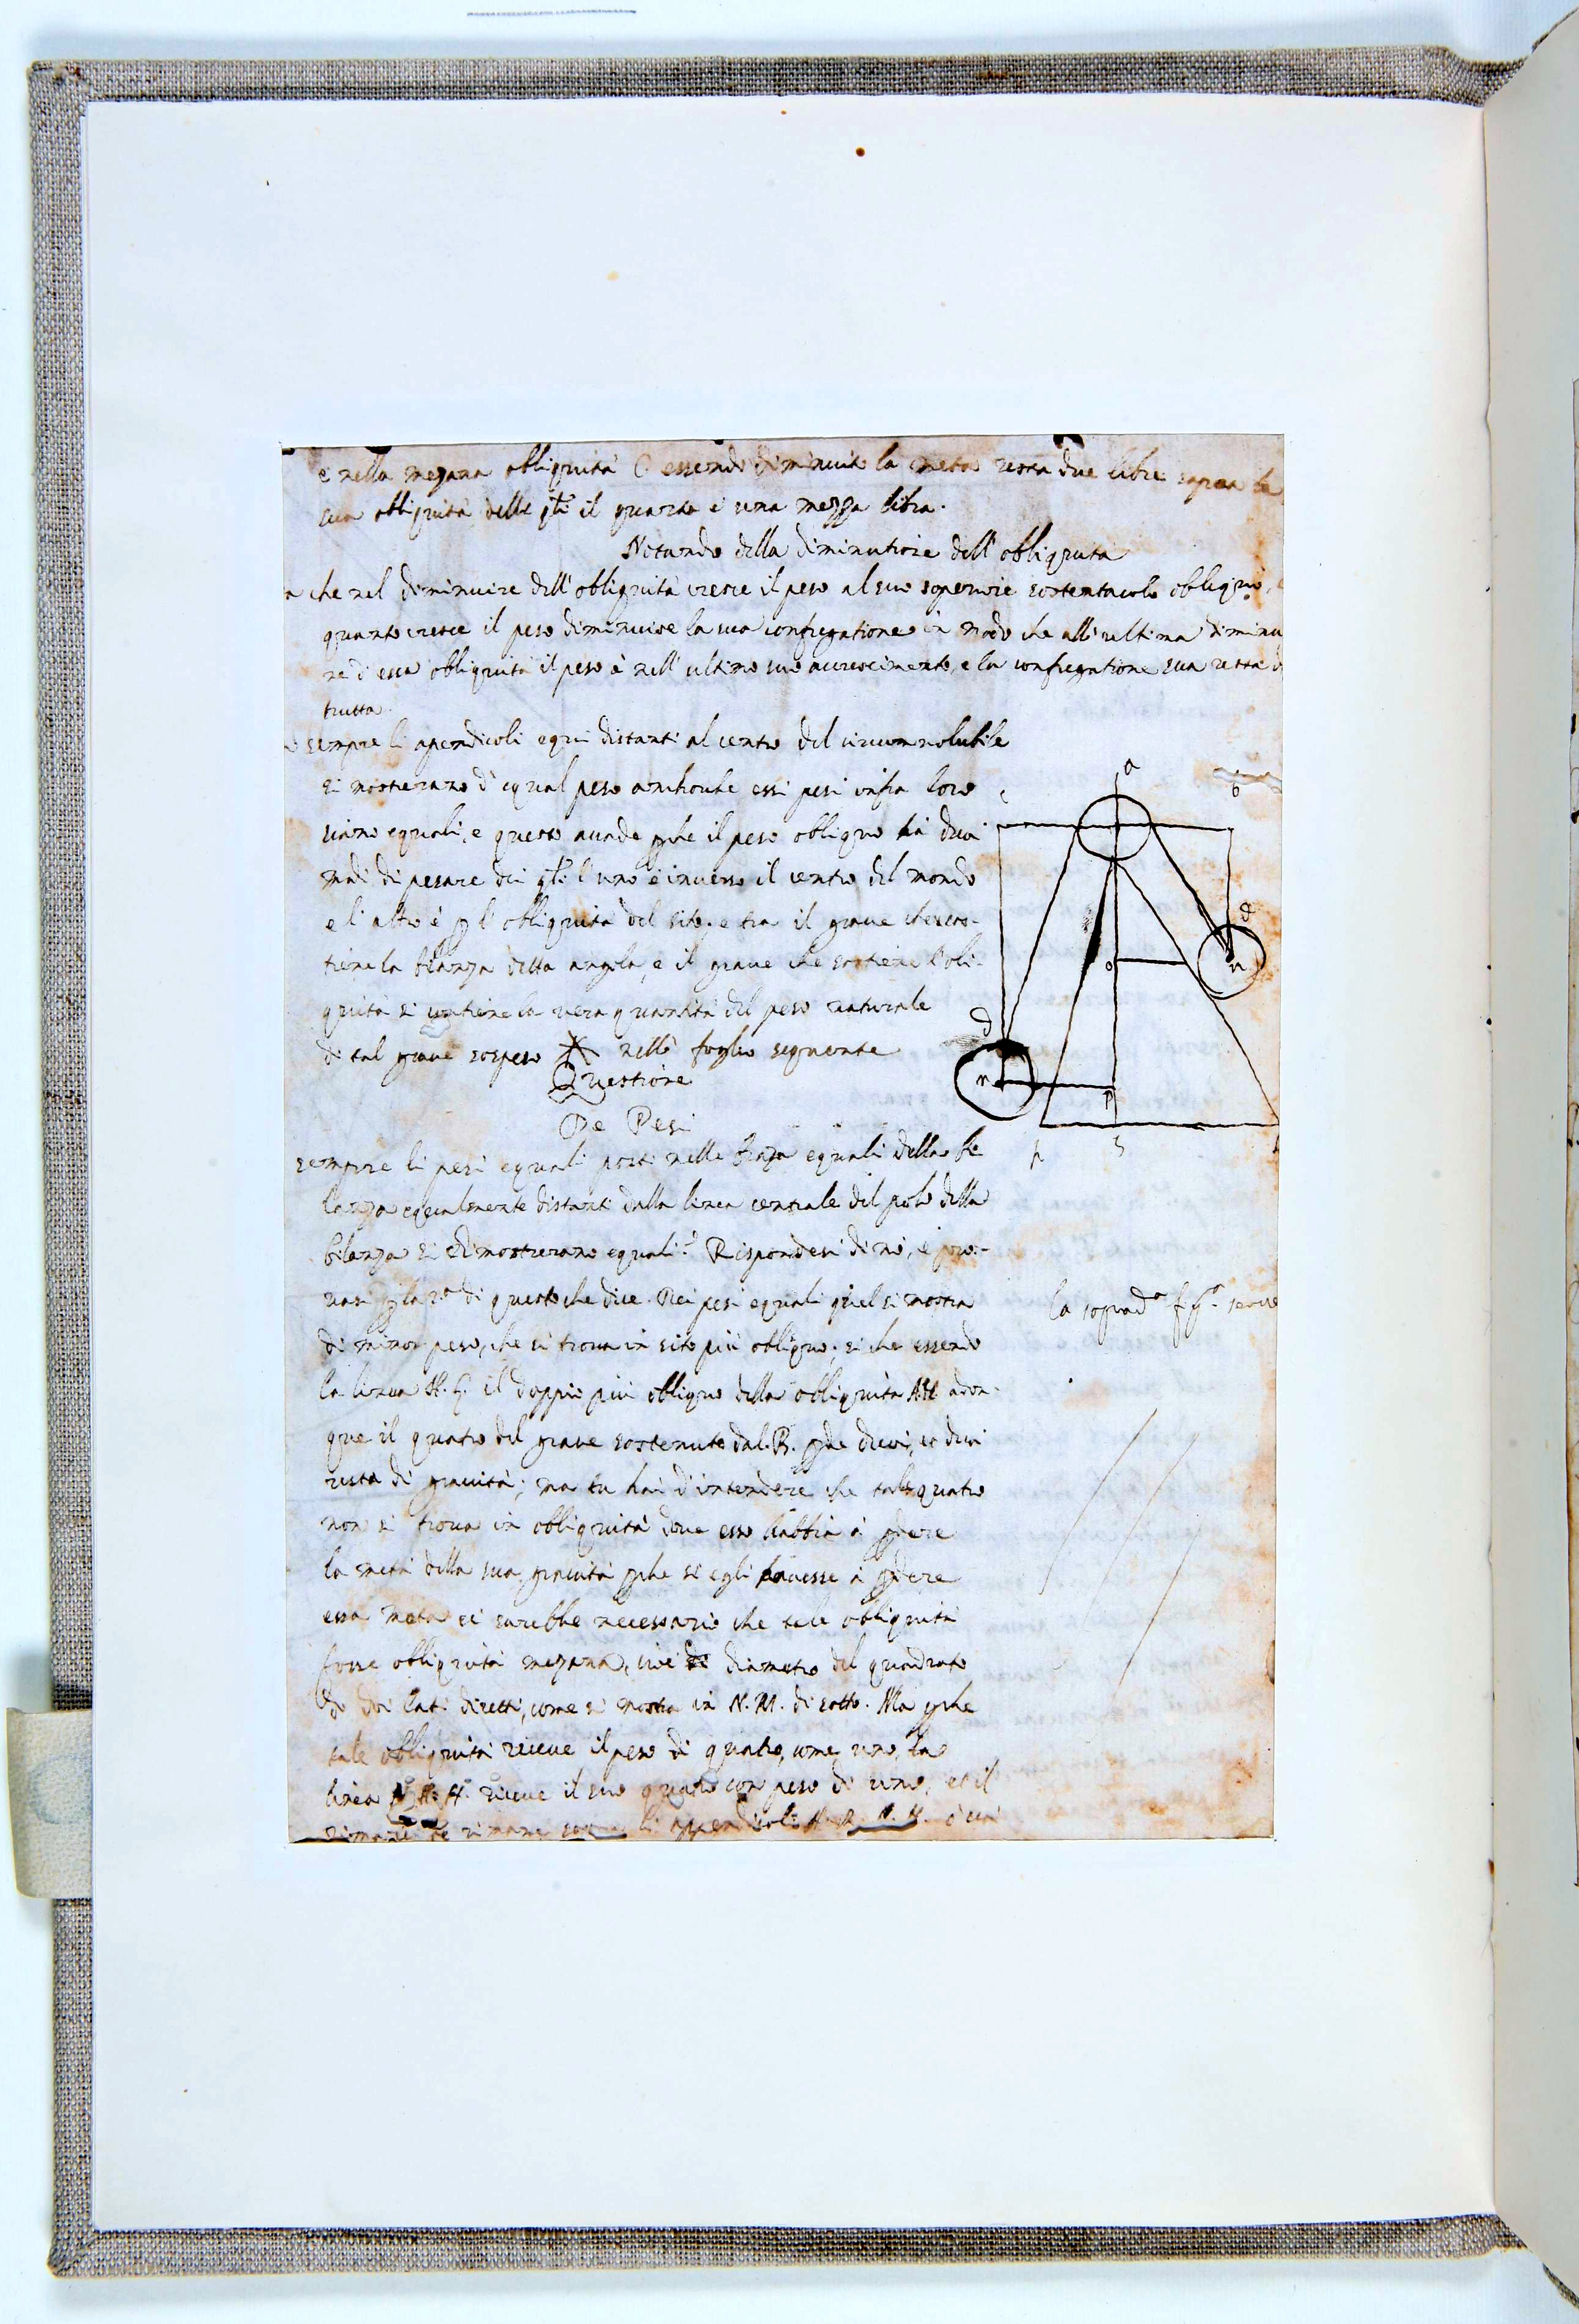 e nella mezana obliquità C essendo diminuito la metà resta due libre sopra la
sua obliquità delle qli il quarto è una mezza libra.
Notando della diminutione dell'obliquità
che nel diminuire dell'obliquità cresce il peso al suo superiore sostentaculo obliquo,
quanto cresce il peso diminuisse la sua confregatione in modo che all'ultima diminu
ne di essa obliquità il peso è nell'ultimo suo accrescimento, e la confregatione sua resta d
trutta.
sempre li apendicoli equi distanti al centro del circumvolubile
si mosterano d'equal peso anchorche essi pesi infra loro
siano equali, e questo acade pche il peso obliquo hà duoi
modi di pesare dei qli l'uno è inverso il centro del mondo
e l'altro è p l'obliquità del sito, e tra il grave che sos-
tiene la bilanza della angolo, e il grave che sostiene l'obli-
quità si contiene la vera quantità del peso naturale
di tal grave sospeso nello foglio seguente
Questione
De Pesi
sempre li pesi equali posti nelle braza equali della bi
lanza equalmente distanti dalla linea centrale del polo della
bilanza si dimostrerano equali? Rispondesi di nò, e pro-
vasi p la 2.a di questo che dice. Dei pesi equali quel si mostra
di minor peso, che si trova in sito più obliquo; si che essendo
la linea il doppio più obliquo della obliquità adon-
que il quatro del grave sostenuto dal. R. pde duoi, et duoi
resta di gravità; ma tu hai d'intendere che tale quatro
non si trova in obliquità dove esso habbia à pdere
la metà della sua gravità pche se egli havesse à pdere
essa metà ei sarebbe necessario che tale obliquità
fosse obliquità mezana, cioè diametro del quadrato
di doi lati diretti, come si mostra in N. M. di sotto. Ma pche
tale obliquità riceve il peso di quatro, come uno, la
linea riceve il suo quatro con peso di uno, et il
rimane li appendicoli
a
c
b
d
o
n
d
n
p
h
la soprad.a fig.a serve